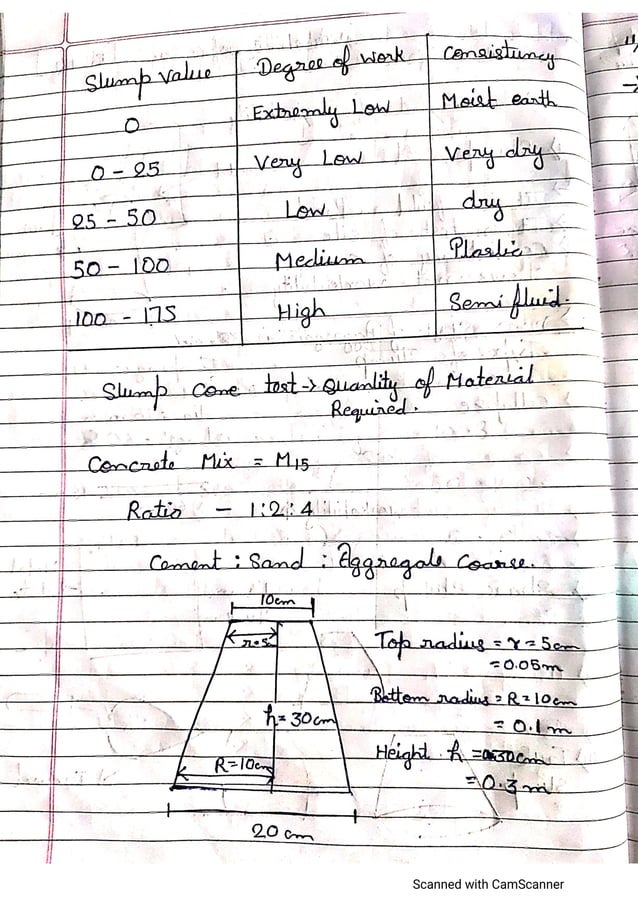 Slump value | Degree of work | Consistuncy
0 | Extremly Low | Moist earth
0 - 25 | Very Low | Very dry
25 - 50 | Low | dry
50 - 100 | Medium | Plastic
100 - 175 | High | Semi fluid.
Slump Cone test -> Quantity of Material
Required.
Concrete Mix = M15
Ratio - 1:2:4
Cement : Sand : Aggregate Coarse.
10cm
r=5
h= 30cm
R=10cm
20 cm
Top radius = r = 5cm
= 0.05m
Bottom radius = R = 10cm
= 0.1m
Height h = 30cm
= 0.3m
Scanned with CamScanner